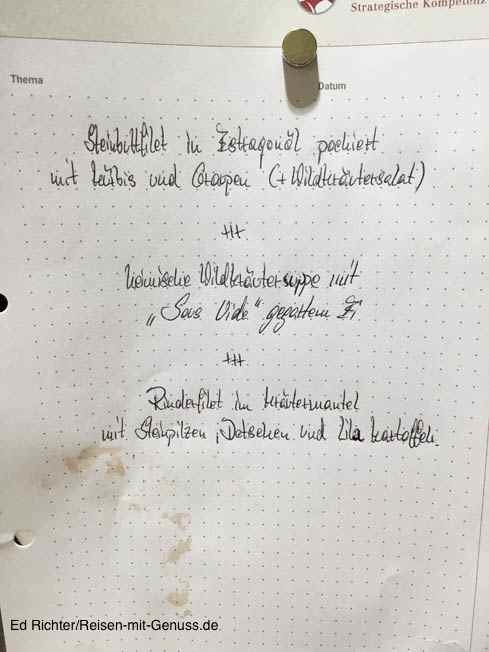 Strategische Kompetenz
Thema
Datum
Steinbuttfilet in Estragonöl pochiert
mit Kürbis und Graupen (+Wildkräutersalat)
+++
heimische Wildkräutersuppe mit
„Sous Vide" gegartem Ei
+++
Rinderfilet im Kräutermantel
mit Steinpilzen, Datschen und Lila Kartoffeln
Ed Richter/Reisen-mit-Genuss.de